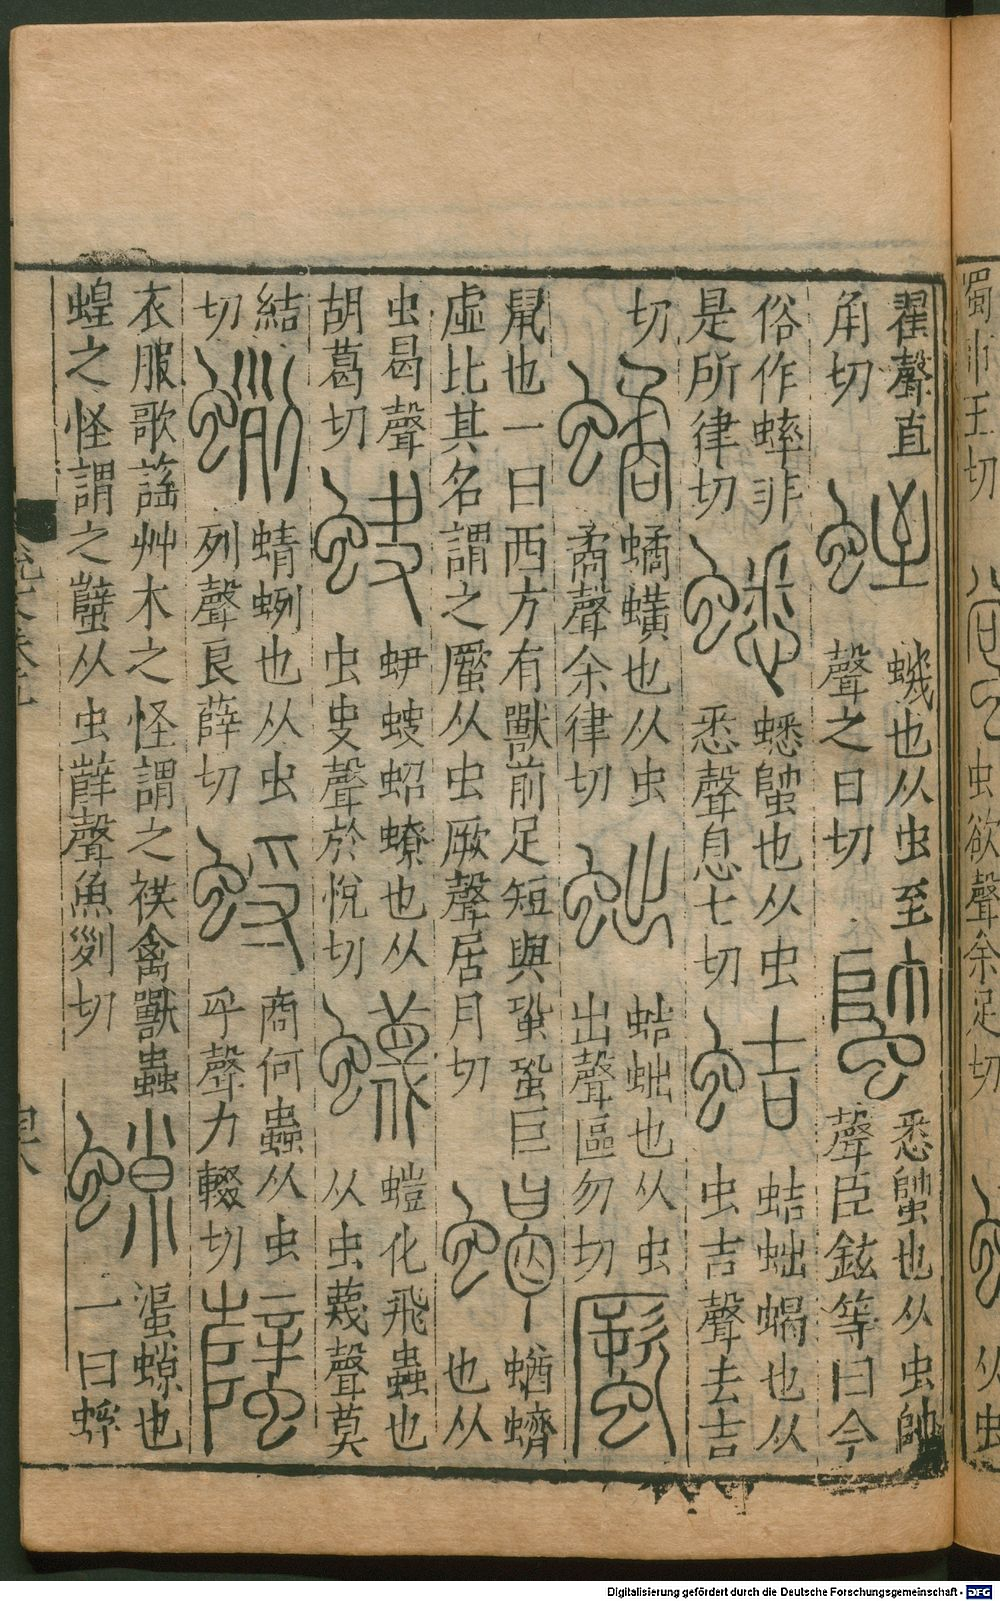 翟聲直
角切
蛭
蟣也从虫至
聲之日切
䘦
悉䘦也从虫帥
聲臣鉉等曰今
俗作蟀非
是所律切
蟋
蟋䘦也从虫
悉聲息七切
蛣
蛣䖦蝎也从
虫吉聲去吉
切
𧑐
𧑐蟥也从虫
矞聲余律切
䖦
蛣䖦也从虫
出聲區勿切
蟨
鼠也一曰西方有獸前足短與蛩蛩巨
虛比其名謂之蟨从虫厥聲居月切
蝎
蝤蠐
也从
虫曷聲
胡葛切
蚗
蛜蚗蛁蟟也从
虫叏聲於悅切
蠛
螘化飛蟲也
从虫蔑聲莫
結
切
蛚
蜻蛚也从虫
列聲良薛切
蛶
商何蟲从虫
寽聲力輟切
蠥
衣服歌謠艸木之怪謂之禖禽獸蟲
蝗之怪謂之蠥从虫辥聲魚列切
也
一曰
Digitalisierung gefördert durch die Deutsche Forschungsgemeinschaft - DFG